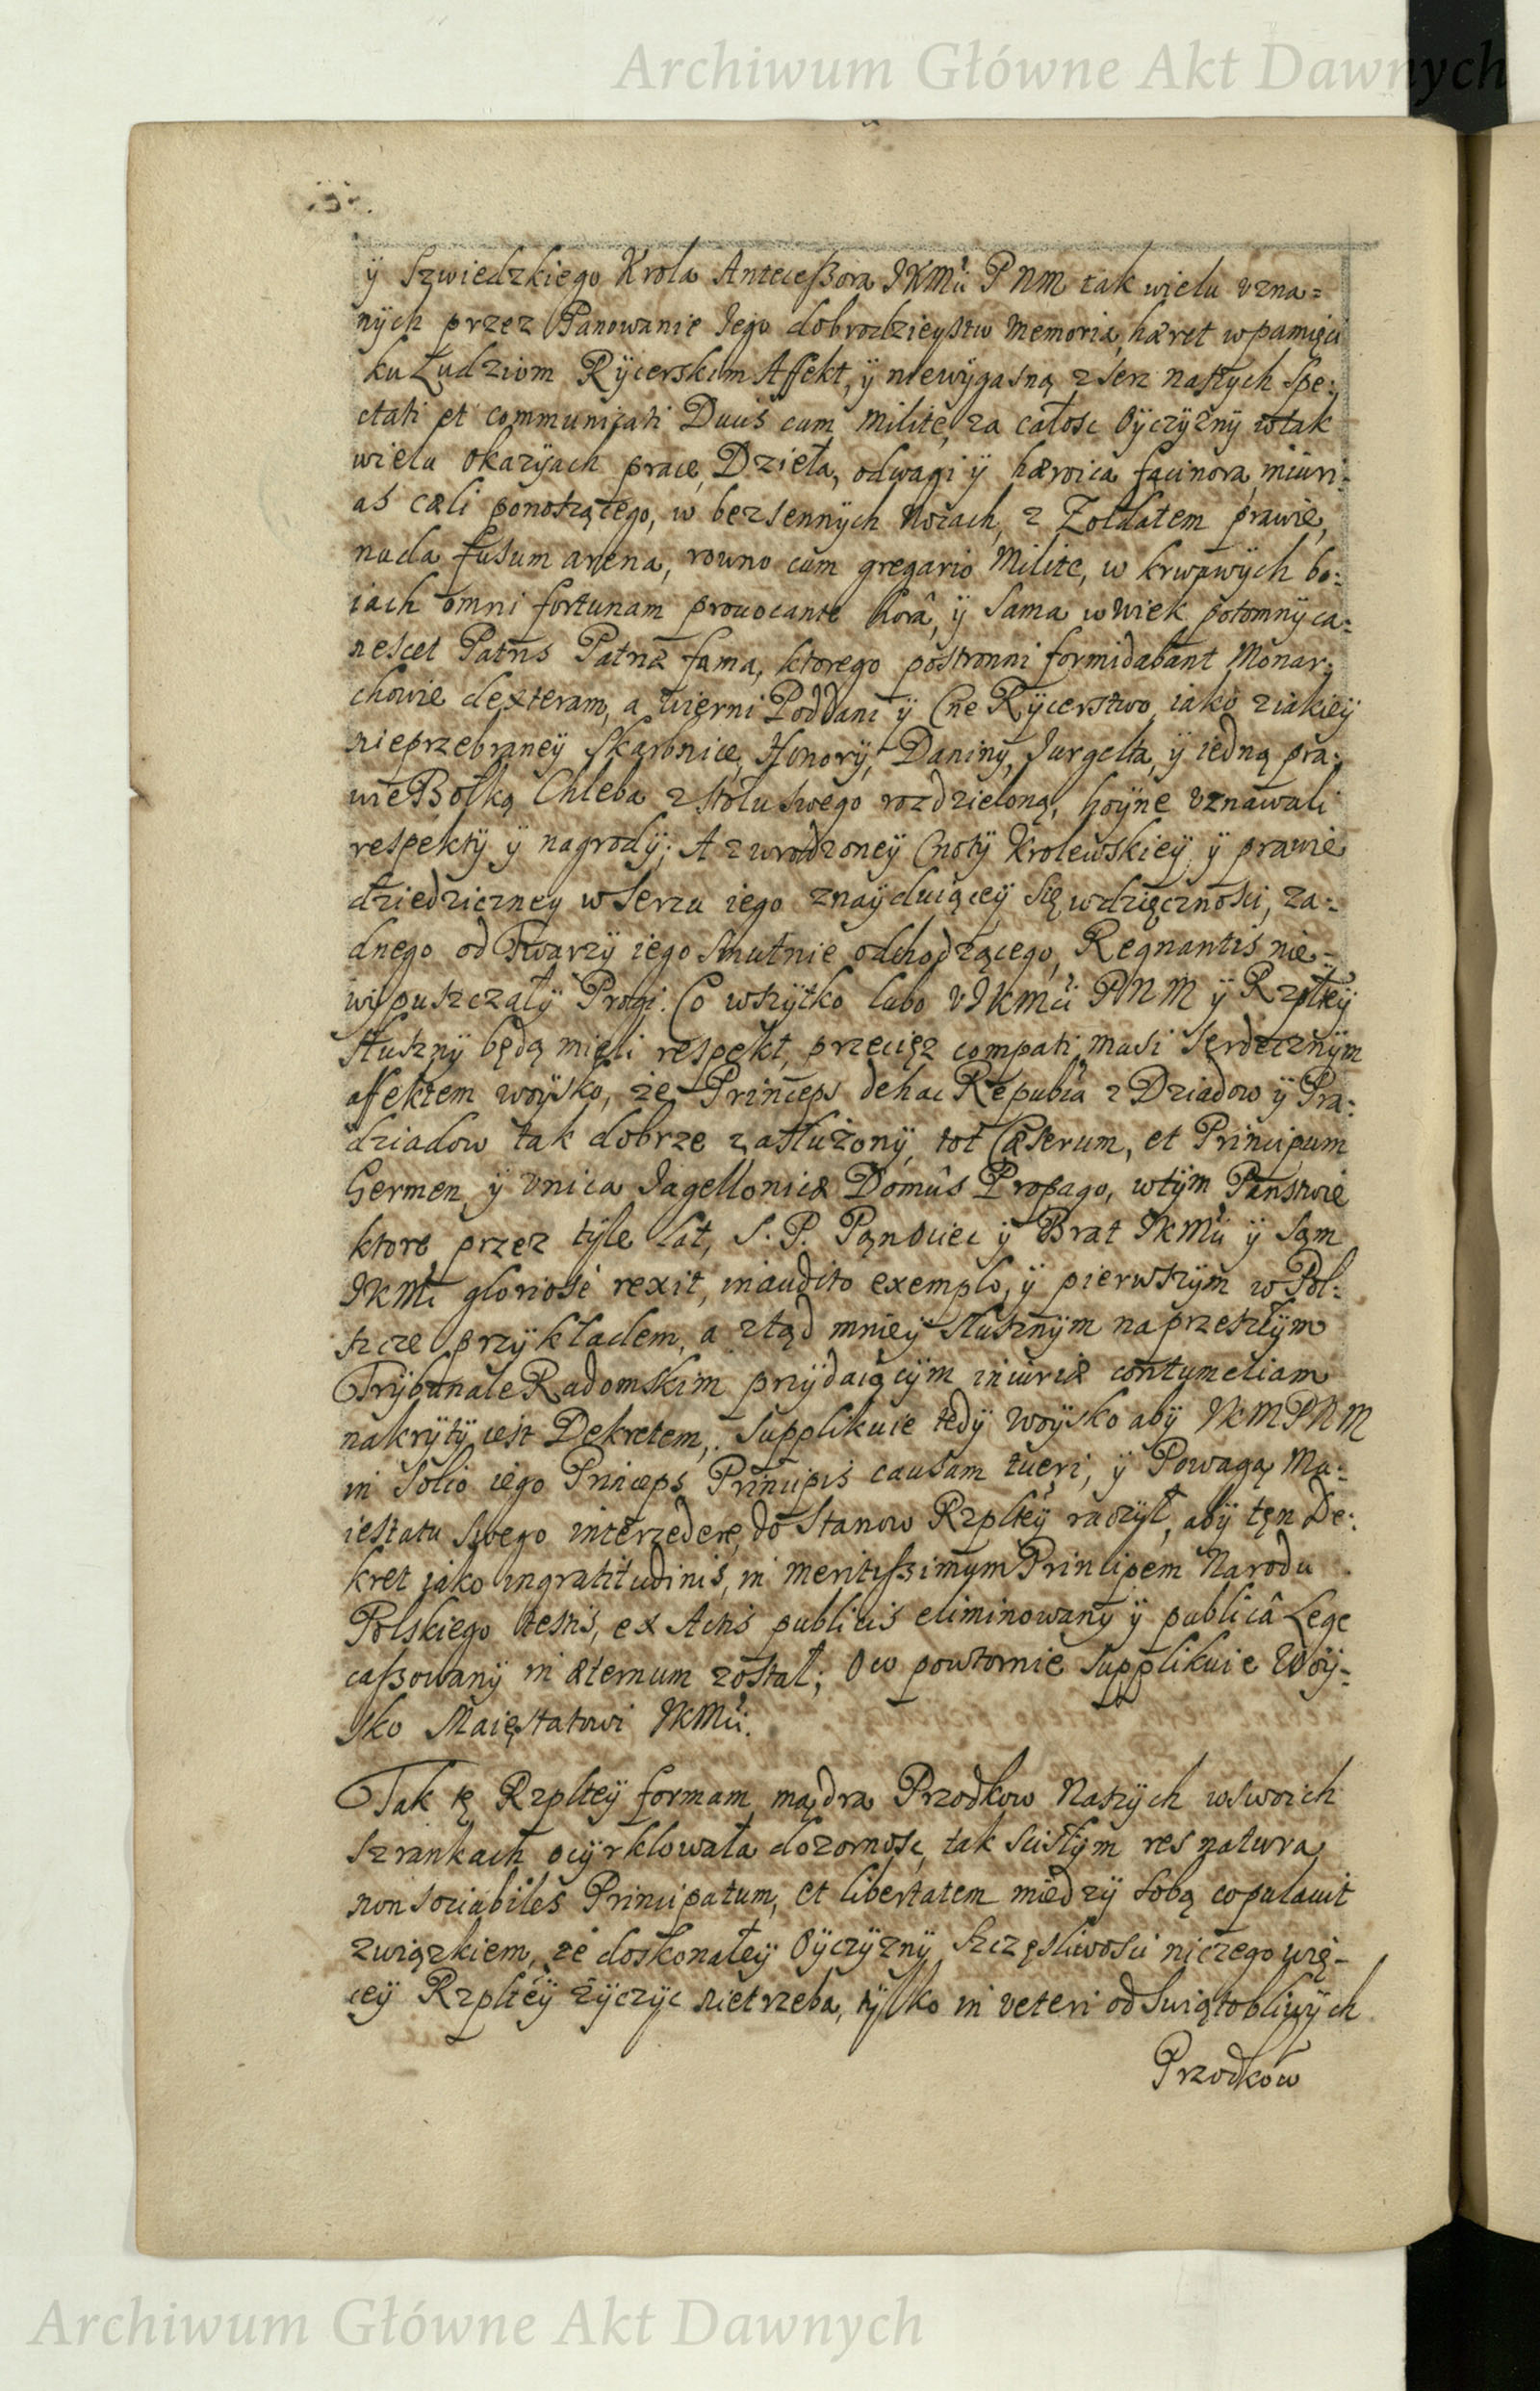 Archiwum Główne Akt Dawnych
ÿ Szwiedzkiego Krola Antecessora JKMci PNM tak wielu vzna=
nÿch przez Panowanie Jego dobrodzieystw memoria, hæret w pamięci
ku Ludziom Rÿcerskim Affekt, ÿ niewÿgasną z serc naszych spe:
ctati et communicati Ducis cum milite, za całosc Oÿczÿznÿ w tak
wielu okazÿach prace, Dzieła, odwagi ÿ hæroica facinora, iniuri:
as cæli ponoszącego, w bezsennÿch Nocach, z Zołdatem prawie,
nuda fusum arena, rowno cum gregario Milite, w krwawÿch bo:
iach omni fortunam prouocante horâ, ÿ sama w wiek potomnÿ ca:
nescet Patris Patriæ fama, ktorego postronni formidabant Monar:
chowie dexteram, a wierni Poddani ÿ Cne Rÿcerstwo, iako z iakieÿ
nieprzebraneÿ skarbnice, Honorÿ, Daninÿ, Jurgelta, ÿ iedną pra:
wie Bołką Chleba z stołu swego rozdzieloną, hoÿne vznawali
respektÿ ÿ nagrodÿ; A z wrodzoneÿ Cnotÿ Krolewskieÿ, ÿ prawie
dziedziczneÿ w sercu iego znaÿduiąceÿ się wdzięcznosci, za:
dnego od Twarzÿ iego smutnie odchodzącego, Regnantis nie=
wÿpuszczałÿ Progi. Co wszÿtko lubo v JKMci PNM ÿ Rzpltеÿ
słusznÿ będą mieli respekt, przeciez compati musi serdecznÿm
affektem woÿsko, że Princeps de hac Republica z Dziadow ÿ Pra:
dziadow tak dobrze zasłużonÿ, tot Cæserum, et Principum
Germen, ÿ vnica Jagellonicæ Domûs Propago, w tÿm Panstwie
ktore przez tÿle lat, S. P. Pan Ociec ÿ Brat JKMci ÿ sam
JKMc gloriose rexit, inaudito exemplo, ÿ pierwszÿm w Pol:
szcze przÿkładem, a ztąd mnieÿ słusznÿm na przeszłÿm
Trÿbunale Radomskim przÿdaiącÿm iniuriæ contumeliam
nakrÿtÿ iest Dekretem, Supplikuie tedÿ Woÿsko abÿ JKM PNM
in solio iego Princeps Principis causam tueri, ÿ Powagą Ma:
iestatu swego intercedere, do Stanow Rzplteÿ raczÿł, abÿ ten De:
kret iako ingratitudinis, in meritissimum Principem Narodu
Polskiego testis, ex Actis publicis eliminowanÿ ÿ publicâ Lege
cassowanÿ in æternum został; O co powtornie supplikuie Woÿ=
sko Maiestatowi JKMci.
Tak tę Rzplteÿ formam, mądra Przodkow Naszÿch w swoich
szrankach ocÿrklowała dozornosc, tak scisłÿm res natura
non sociabiles Principatum, et libertatem miedzÿ sobą copulauit
związkiem, że doskonałeÿ Oÿczÿznÿ szczęsliwosci niczego wię=
ceÿ Rzplteÿ życzÿc nietrzeba, tÿlko in veteri od swiątobliwÿch
Przodkow
Archiwum Główne Akt Dawnych